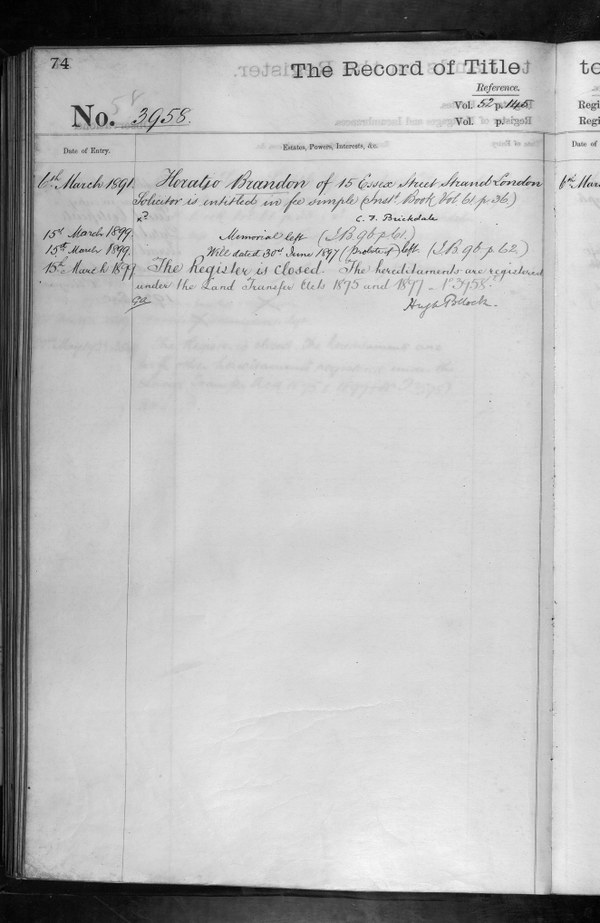 74
The Record of Title
to
Reference.
Vol. 52 p. 145
Regi
No. 3958.
Vol. p.
Regi
Date of Entry.
Estates, Powers, Interests, &c.
Date of
6th March 1891.
Horatio Brandon of 15 Essex Street Strand London
6th Mar
Solicitor is entitled in fee simple (Inst. Book Vol 61 p 36)
C. F. Brickdale
15th March 1899.
Memorial left (I.B. 96 p. 61.)
15th March 1899.
Will dated 30th June 1897 (Probate of) left. (I.B. 96 p. 62.)
15th March 1899
The Register is closed. The hereditaments are registered
under the Land Transfer Acts 1875 and 1897 - No 3958.
Hugh Pollock.